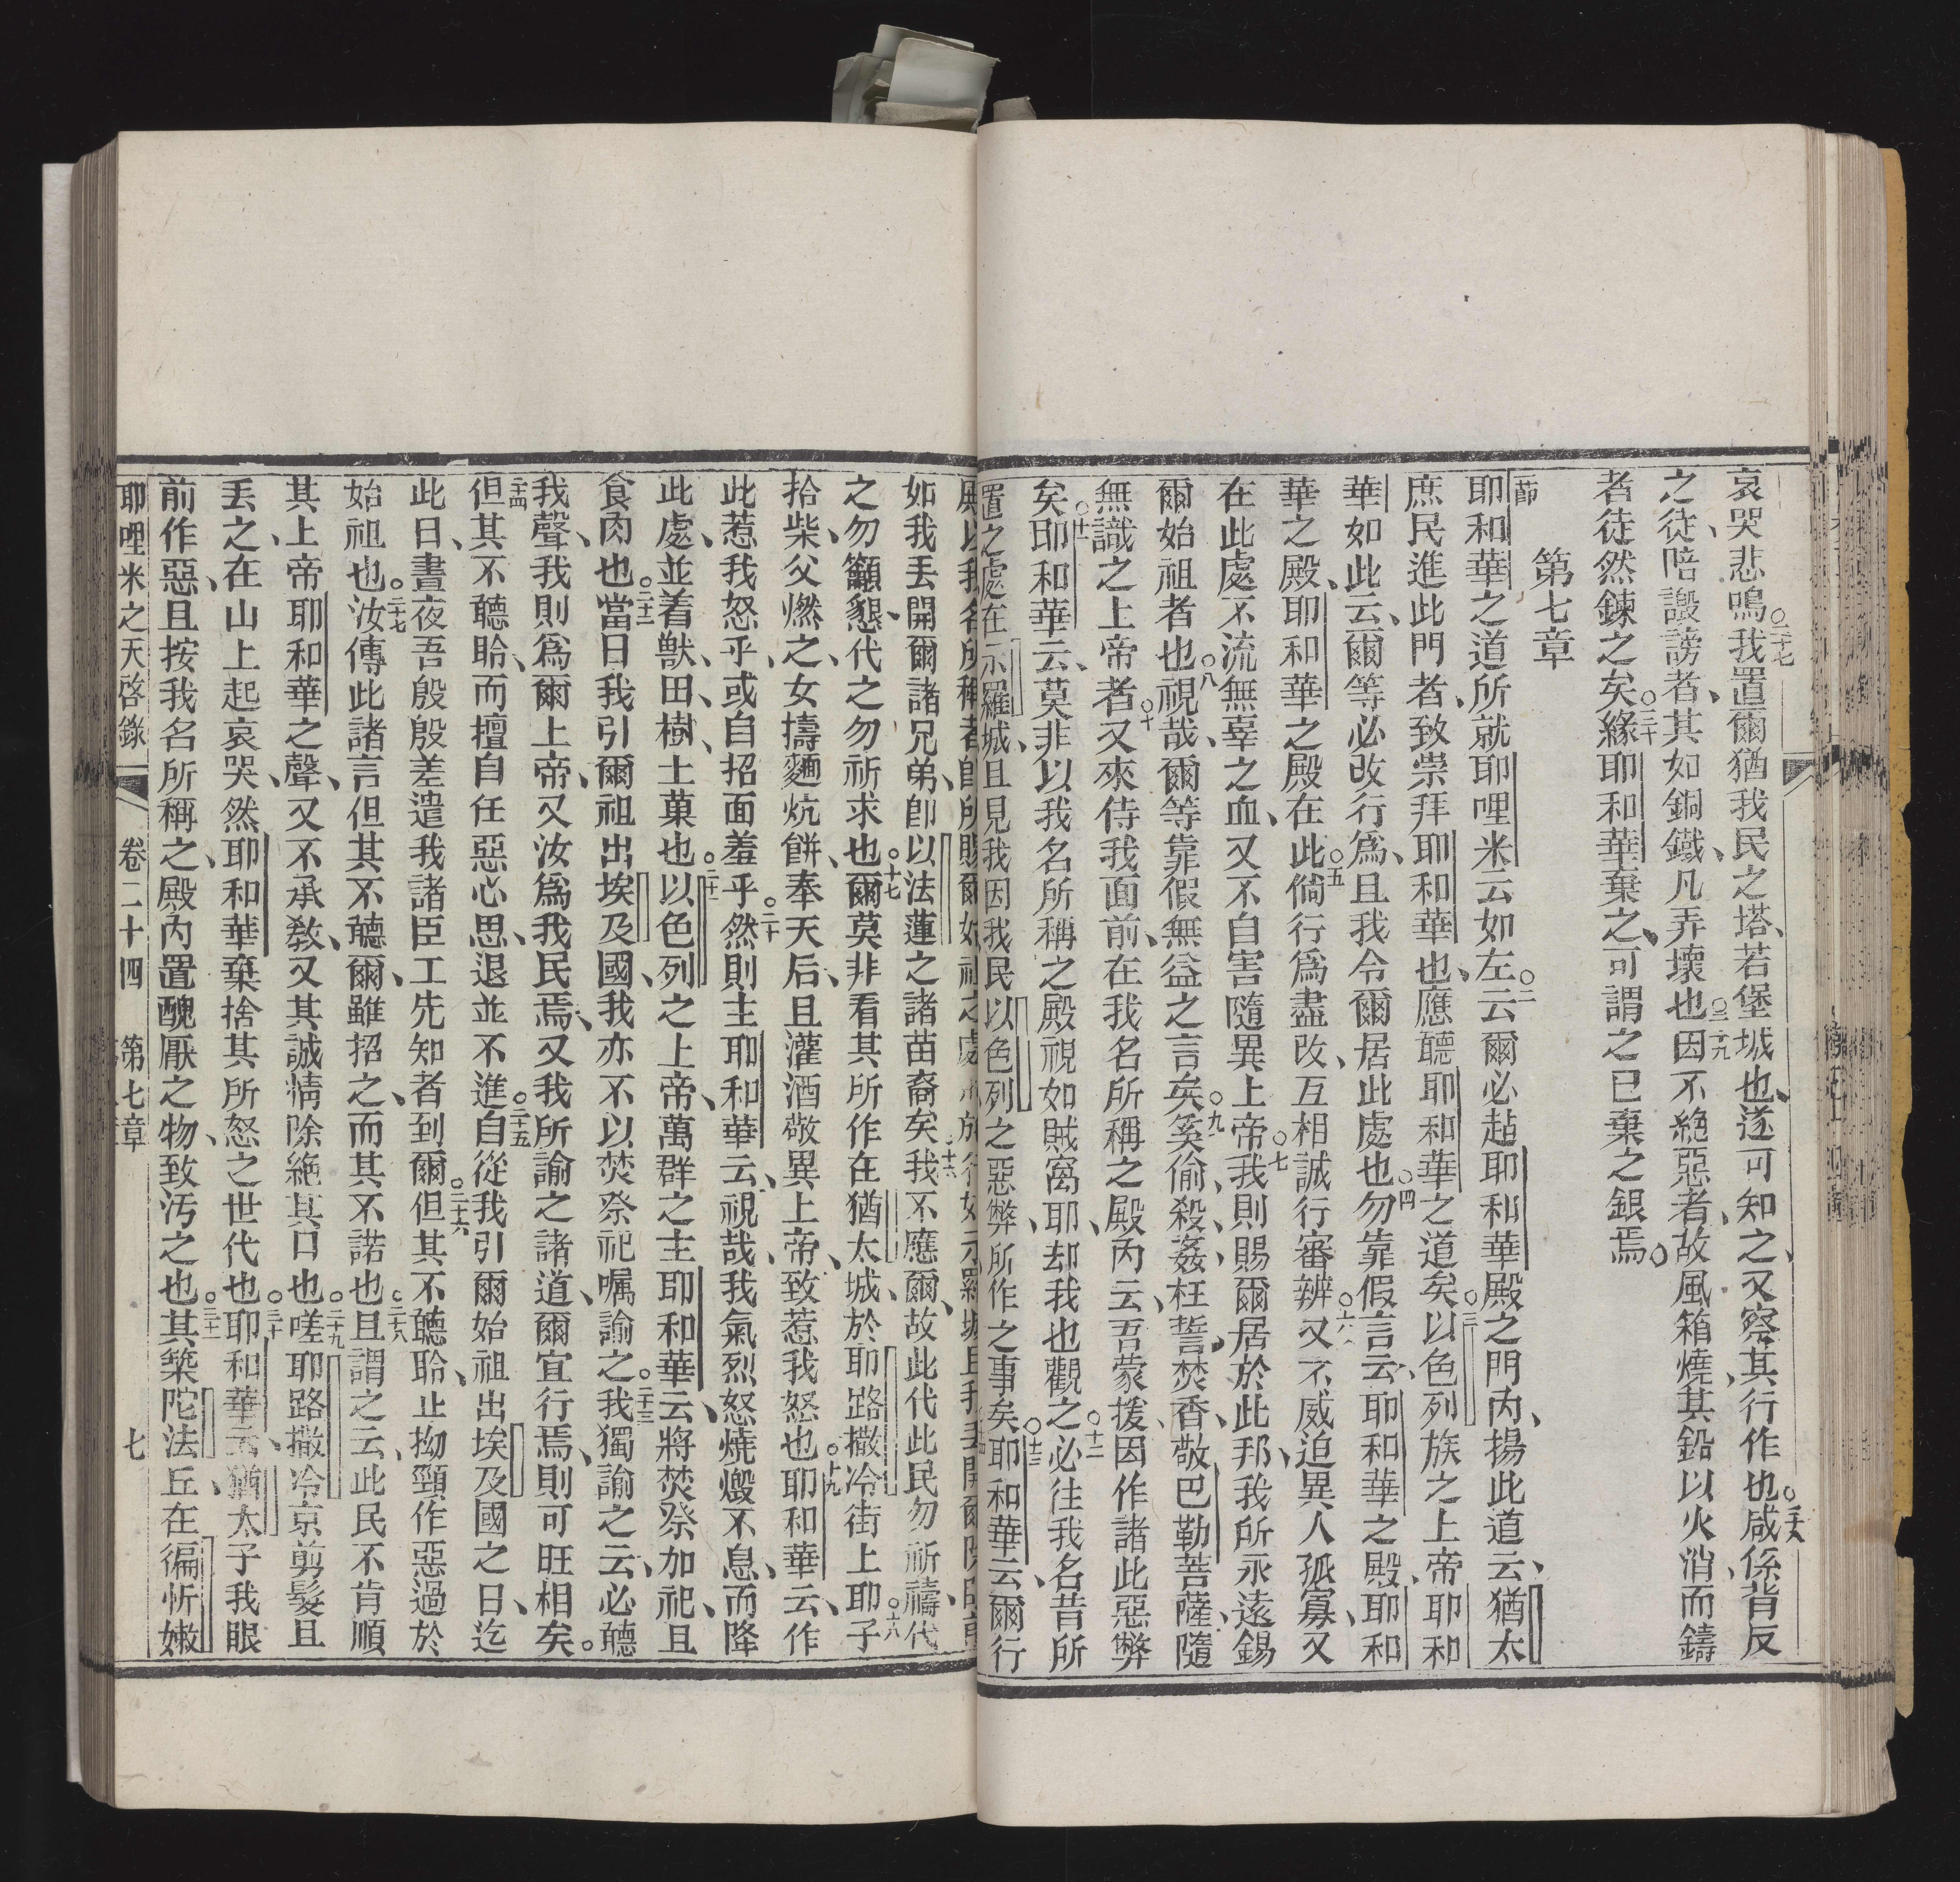 哀哭悲鳴。二十七我置爾猶我民之塔、若堡城也、遂可知之、又察其行作也。二十八咸係背反
之徒、陪譭謗者、其如銅鐵、凡弄壞也。二十九因不絕惡者、故風箱燒、其鉛以火消、而鑄
者徒然鍊之矣。三十緣耶和華棄之、可謂之已棄之銀焉。
第七章
一節耶和華之道所就耶哩米云如左。二云爾必跕耶和華殿之門內、揚此道云、猶太
庶民進此門者、致崇拜耶和華也、應聽耶和華之道矣。三以色列族之上帝、耶和
華如此云、爾等必改行爲、且我令爾居此處也。四勿靠假言云、耶和華之殿、耶和
華之殿、耶和華之殿在此。五倘行爲盡改、互相誠行審辦。六又不威迫異人孤寡、又
在此處不流無辜之血、又不自害隨異上帝。七我則賜爾居於此邦、我所永遠錫
爾始祖者也。八視哉、爾等靠假無益之言矣。九奚偷、殺、姦、枉誓、焚香、敬巴勒菩薩、隨
無識之上帝者。十又來侍我面前、在我名所稱之殿內云、吾蒙援、因作諸此惡弊
矣。十一耶和華云、莫非以我名所稱之殿視如賊窩耶、却我也觀之。十二必往我名昔所
置之處在示羅城、且見我因我民以色列之惡弊、所作之事矣。十三耶和華云、爾行
如我丟開爾諸兄弟、卽以法蓮之諸苗裔矣。十六我不應爾、故此代此民勿祈禱、代
之勿籲懇、代之勿祈求也。十七爾莫非看其所作在猶太城、於耶路撒冷街上耶。十八子
拾柴、父燃之、女擣麵炕餅、奉天后、且灌酒敬異上帝、致惹我怒也。十九耶和華云、作
此惹我怒乎、或自招面羞乎。二十然則主耶和華云、視哉、我氣烈怒燒燬不息、而降
此處、並着獸、田樹、土菓也。二十一以色列之上帝、萬群之主耶和華云、將焚祭加祀、且
食肉也。二十二當日我引爾祖出埃及國、我亦不以焚祭祀囑諭之。二十三我獨諭之云、必聽
我聲、我則爲爾上帝、又汝爲我民焉、又我所諭之諸道、爾宜行焉、則可旺相矣。
二十四但其不聽聆、而擅自任惡心思、退並不進。二十五自從我引爾始祖出埃及國之日、迄
此日、晝夜吾殷殷差遣我諸臣工先知者到爾。二十六但其不聽聆、止拗頸作惡過於
始祖也。二十七汝傳此諸言、但其不聽爾、雖招之、而其不諾也。二十八且謂之云、此民不肯順
其上帝耶和華之聲、又不承敎、又其誠情除絕其口也。二十九嗟耶路撒冷京剪髮且
丟之、在山上起哀哭、然耶和華棄捨其所怒之世代也。三十耶和華云、猶太子我眼
前作惡、且按我名所稱之、殿內置醜厭之物、致汚之也。三十一其築陀法丘、在徧忻嫩
耶哩米之天啓錄 卷二十四 第七章 七